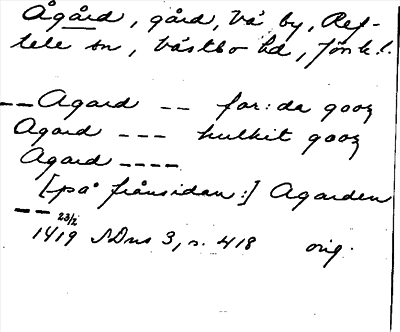 Ågård, gård, Vå by, Ref-
tele sn, Västbo hd, Jönk. l.
-- Agard -- for:da gooz
Agard --- hulkit gooz
Agard ----
[på frånsidan:] Agarden
--
1419 23/2 SDns 3, s. 418 orig.